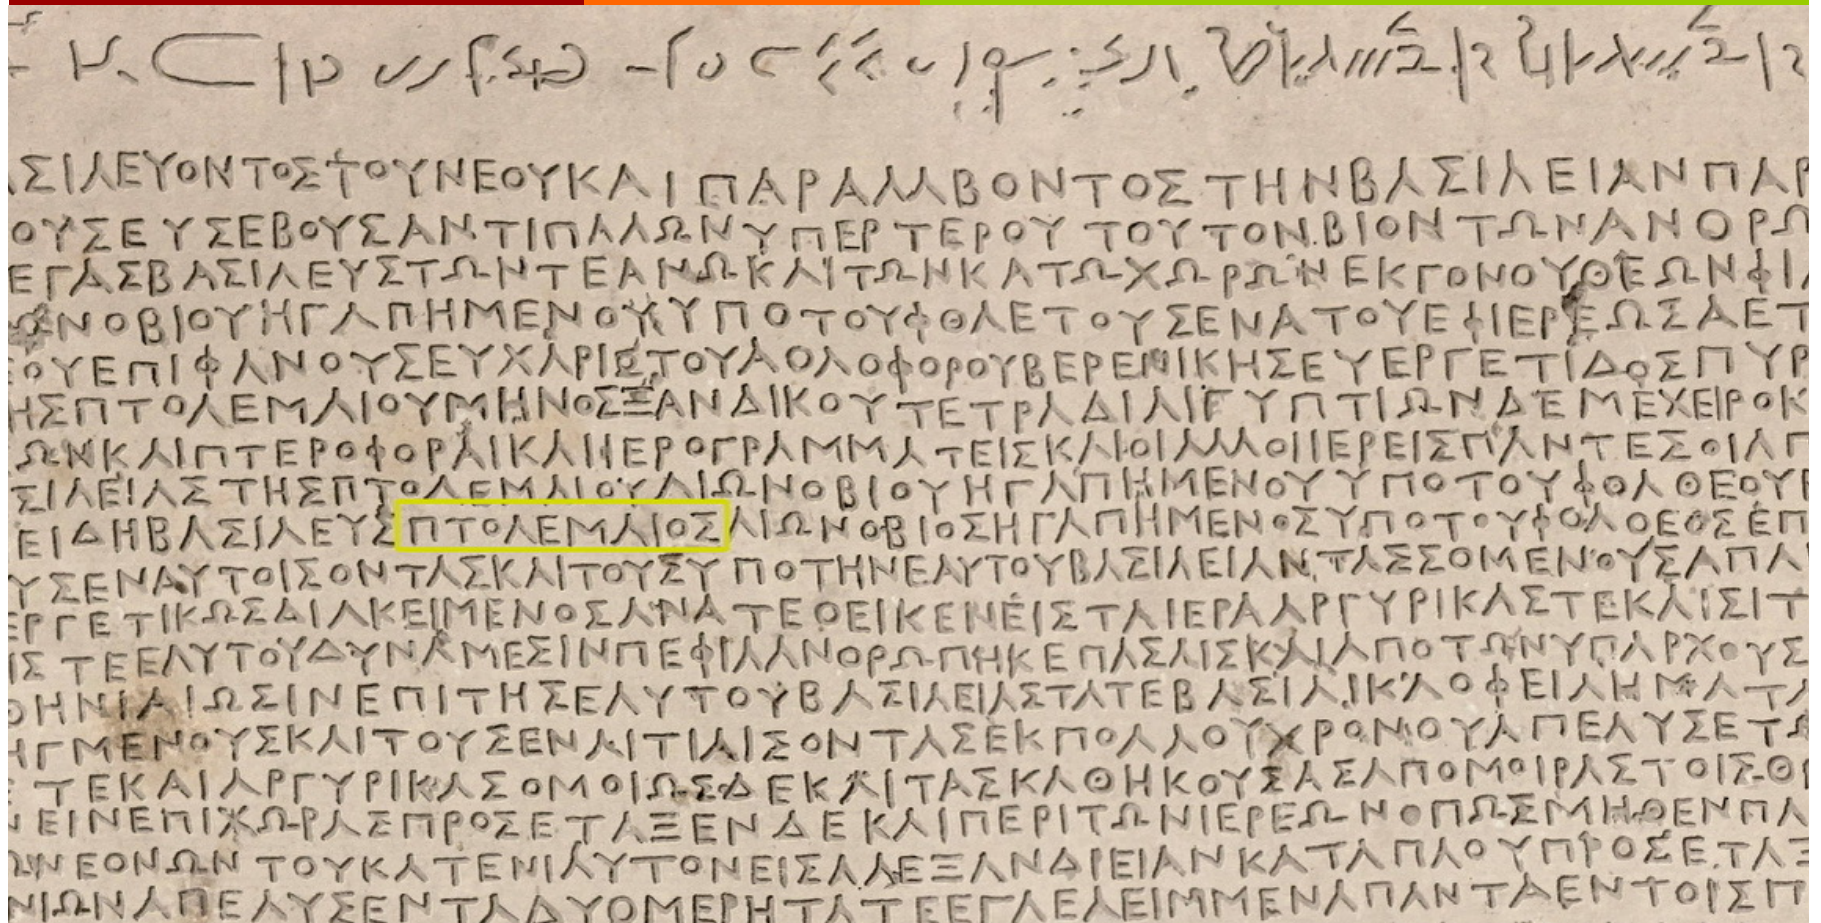 ΑΣΙΛΕΥΟΝΤΟΣΤΟΥΝΕΟΥΚΑΙΠΑΡΑΛΑΒΟΝΤΟΣΤΗΝΒΑΣΙΛΕΙΑΝΠΑΡ
ΟΥΣΕΥΣΕΒΟΥΣΑΝΤΙΠΑΛΩΝΥΠΕΡΤΕΡΟΥΤΟΥΤΟΝΒΙΟΝΤΩΝΑΝΘΡΩ
ΕΓΑΣΒΑΣΙΛΕΥΣΤΩΝΤΕΑΝΩΚΑΙΤΩΝΚΑΤΩΧΩΡΩΝΕΚΓΟΝΟΥΘΕΩΝΦΙΛ
ΩΝΟΒΙΟΥΗΓΑΠΗΜΕΝΟΥΥΠΟΤΟΥΦΘΑΕΤΟΥΣΕΝΑΤΟΥΕΦΙΕΡΕΩΣΑΕΤ
ΟΥΕΠΙΦΑΝΟΥΣΕΥΧΑΡΙΣΤΟΥΑΘΛΟΦΟΡΟΥΒΕΡΕΝΙΚΗΣΕΥΕΡΓΕΤΙΔΟΣΠΥΡ
ΗΣΠΤΟΛΕΜΑΙΟΥΜΗΝΟΣΞΑΝΔΙΚΟΥΤΕΤΡΑΔΙΑΙΓΥΠΤΙΩΝΔΕΜΕΧΕΙΡΟΚ
ΩΝΚΑΙΠΤΕΡΟΦΟΡΑΙΚΑΙΙΕΡΟΓΡΑΜΜΑΤΕΙΣΚΑΙΟΙΑΛΛΟΙΙΕΡΕΙΣΠΑΝΤΕΣΟΙΑΠ
ΣΙΛΕΙΑΣΤΗΣΠΤΟΛΕΜΑΙΟΥΑΙΩΝΟΒΙΟΥΗΓΑΠΗΜΕΝΟΥΥΠΟΤΟΥΦΘΑΘΕΟΥ
ΕΙΔΗΒΑΣΙΛΕΥΣΠΤΟΛΕΜΑΙΟΣΑΙΩΝΟΒΙΟΣΗΓΑΠΗΜΕΝΟΣΥΠΟΤΟΥΦΘΑΘΕΟΣΕΠ
ΥΣΕΝΑΥΤΟΙΣΟΝΤΑΣΚΑΙΤΟΥΣΥΠΟΤΗΝΕΑΥΤΟΥΒΑΣΙΛΕΙΑΝΤΑΣΣΟΜΕΝΟΥΣΑΠΑ
ΕΡΓΕΤΙΚΩΣΔΙΑΚΕΙΜΕΝΟΣΑΝΑΤΕΘΕΙΚΕΝΕΙΣΤΑΙΕΡΑΑΡΓΥΡΙΚΑΣΤΕΚΑΙΣΙΤ
ΙΣΤΕΕΑΥΤΟΥΔΥΝΑΜΕΣΙΝΠΕΦΙΛΑΝΘΡΩΠΗΚΕΠΑΣΑΙΣΚΑΙΑΠΟΤΩΝΥΠΑΡΧΟΥΣ
ΘΗΝΙΑΙΩΣΙΝΕΠΙΤΗΣΕΑΥΤΟΥΒΑΣΙΛΕΙΑΣΤΑΤΕΒΑΣΙΛΙΚΑΟΦΕΙΛΗΜΑΤΑ
ΗΓΜΕΝΟΥΣΚΑΙΤΟΥΣΕΝΑΙΤΙΑΙΣΟΝΤΑΣΕΚΠΟΛΛΟΥΧΡΟΝΟΥΑΠΕΛΥΣΕΤΩ
ΤΕΚΑΙΑΡΓΥΡΙΚΑΣΟΜΟΙΩΣΔΕΚΑΙΤΑΣΚΑΘΗΚΟΥΣΑΣΑΠΟΜΟΙΡΑΣΤΟΙΣΘ
ΕΙΝΕΠΙΧΩΡΑΣΠΡΟΣΕΤΑΞΕΝΔΕΚΑΙΠΕΡΙΤΩΝΙΕΡΕΩΝΟΠΩΣΜΗΘΕΝΠΛ
ΩΝΕΘΝΩΝΤΟΥΚΑΤΕΝΙΑΥΤΟΝΕΙΣΑΛΕΞΑΝΔΡΕΙΑΝΚΑΤΑΠΛΟΥΠΡΟΣΕΤΑΞ
ΝΙΩΝΑΠΕΛΥΣΕΝΤΑΔΥΟΜΕΡΗΤΑΤΕΕΓΛΕΛΕΙΜΜΕΝΑΠΑΝΤΑΕΝΤΟΙΣΠ